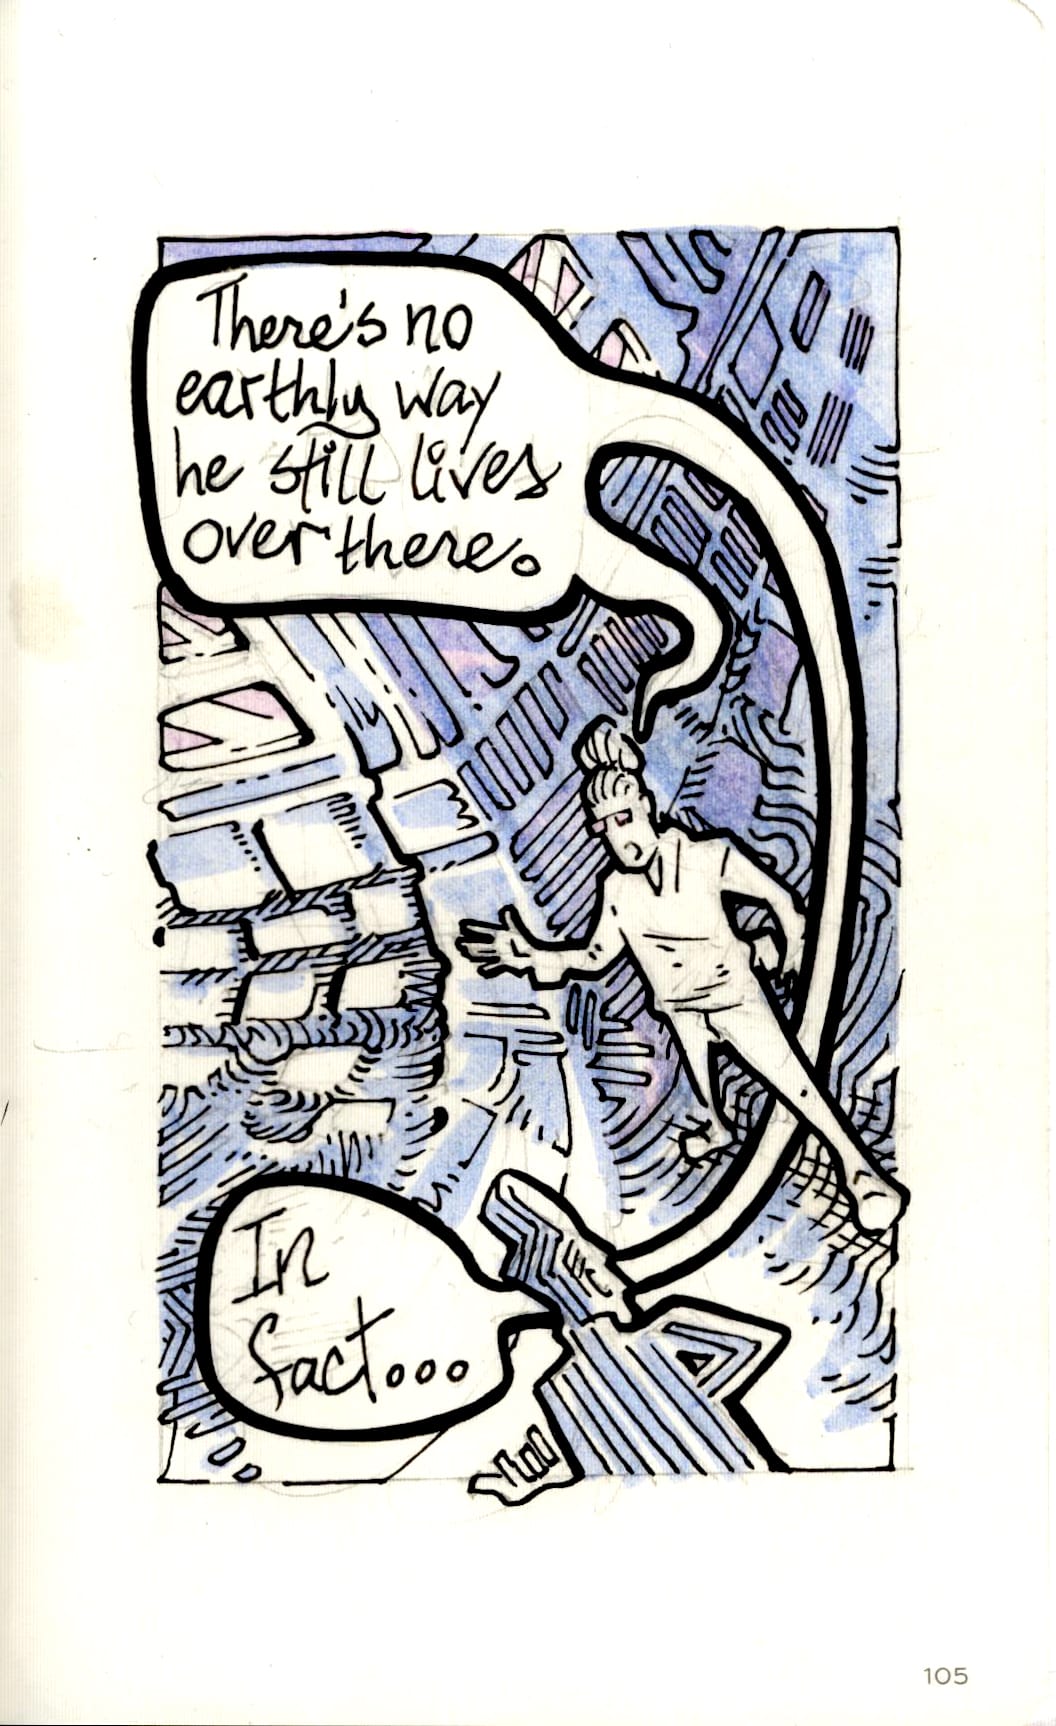 There's no
earthly way
he still lives
over there.
In
fact...
105